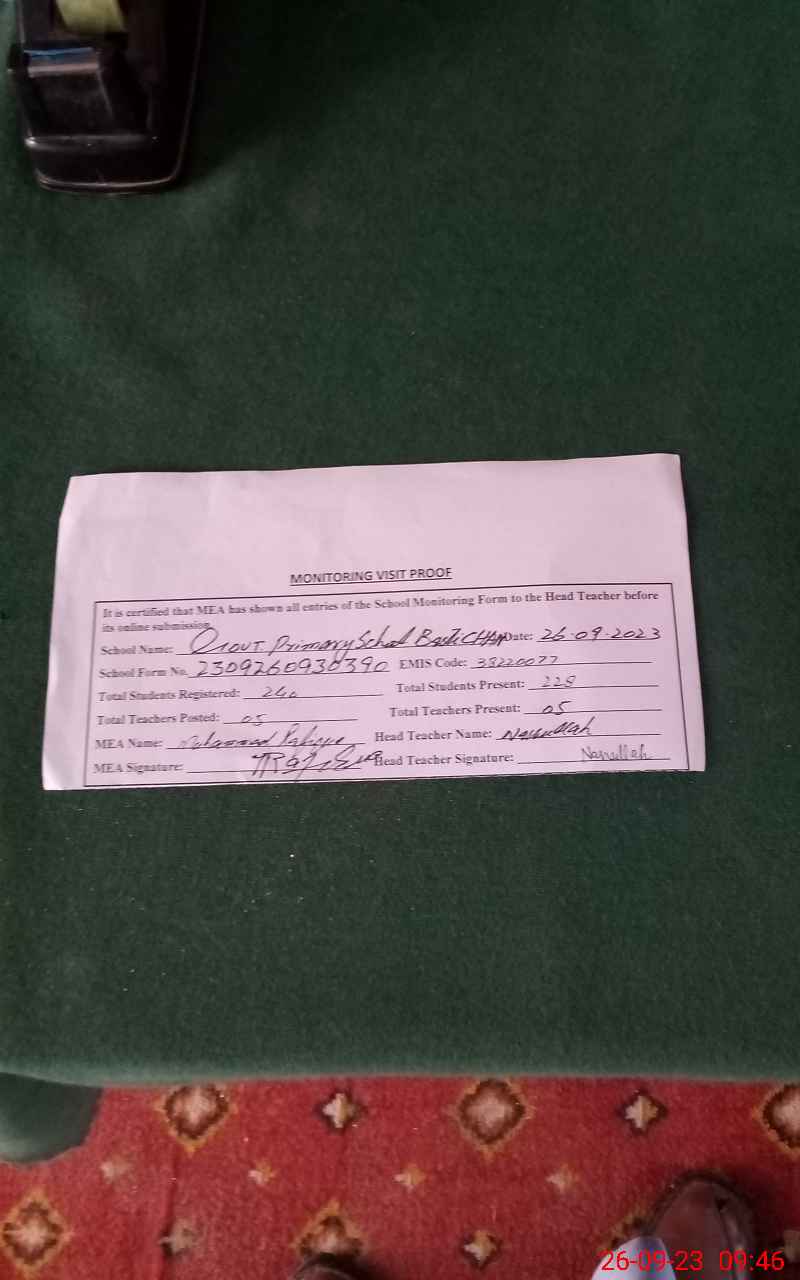 MONITORING VISIT PROOF
It is certified that MEA has shown all entries of the School Monitoring Form to the Head Teacher before
its online submission.
School Name: Govt. Primary School Basti Date: 26-09-2023
School Form No. 2309260930390 EMIS Code: 38220077
Total Students Registered: 240 Total Students Present: 228
Total Teachers Posted: 05 Total Teachers Present: 05
MEA Name: Muhammad Head Teacher Name: Nasrullah
MEA Signature: Head Teacher Signature: Nasrullah
26-09-23 09:46